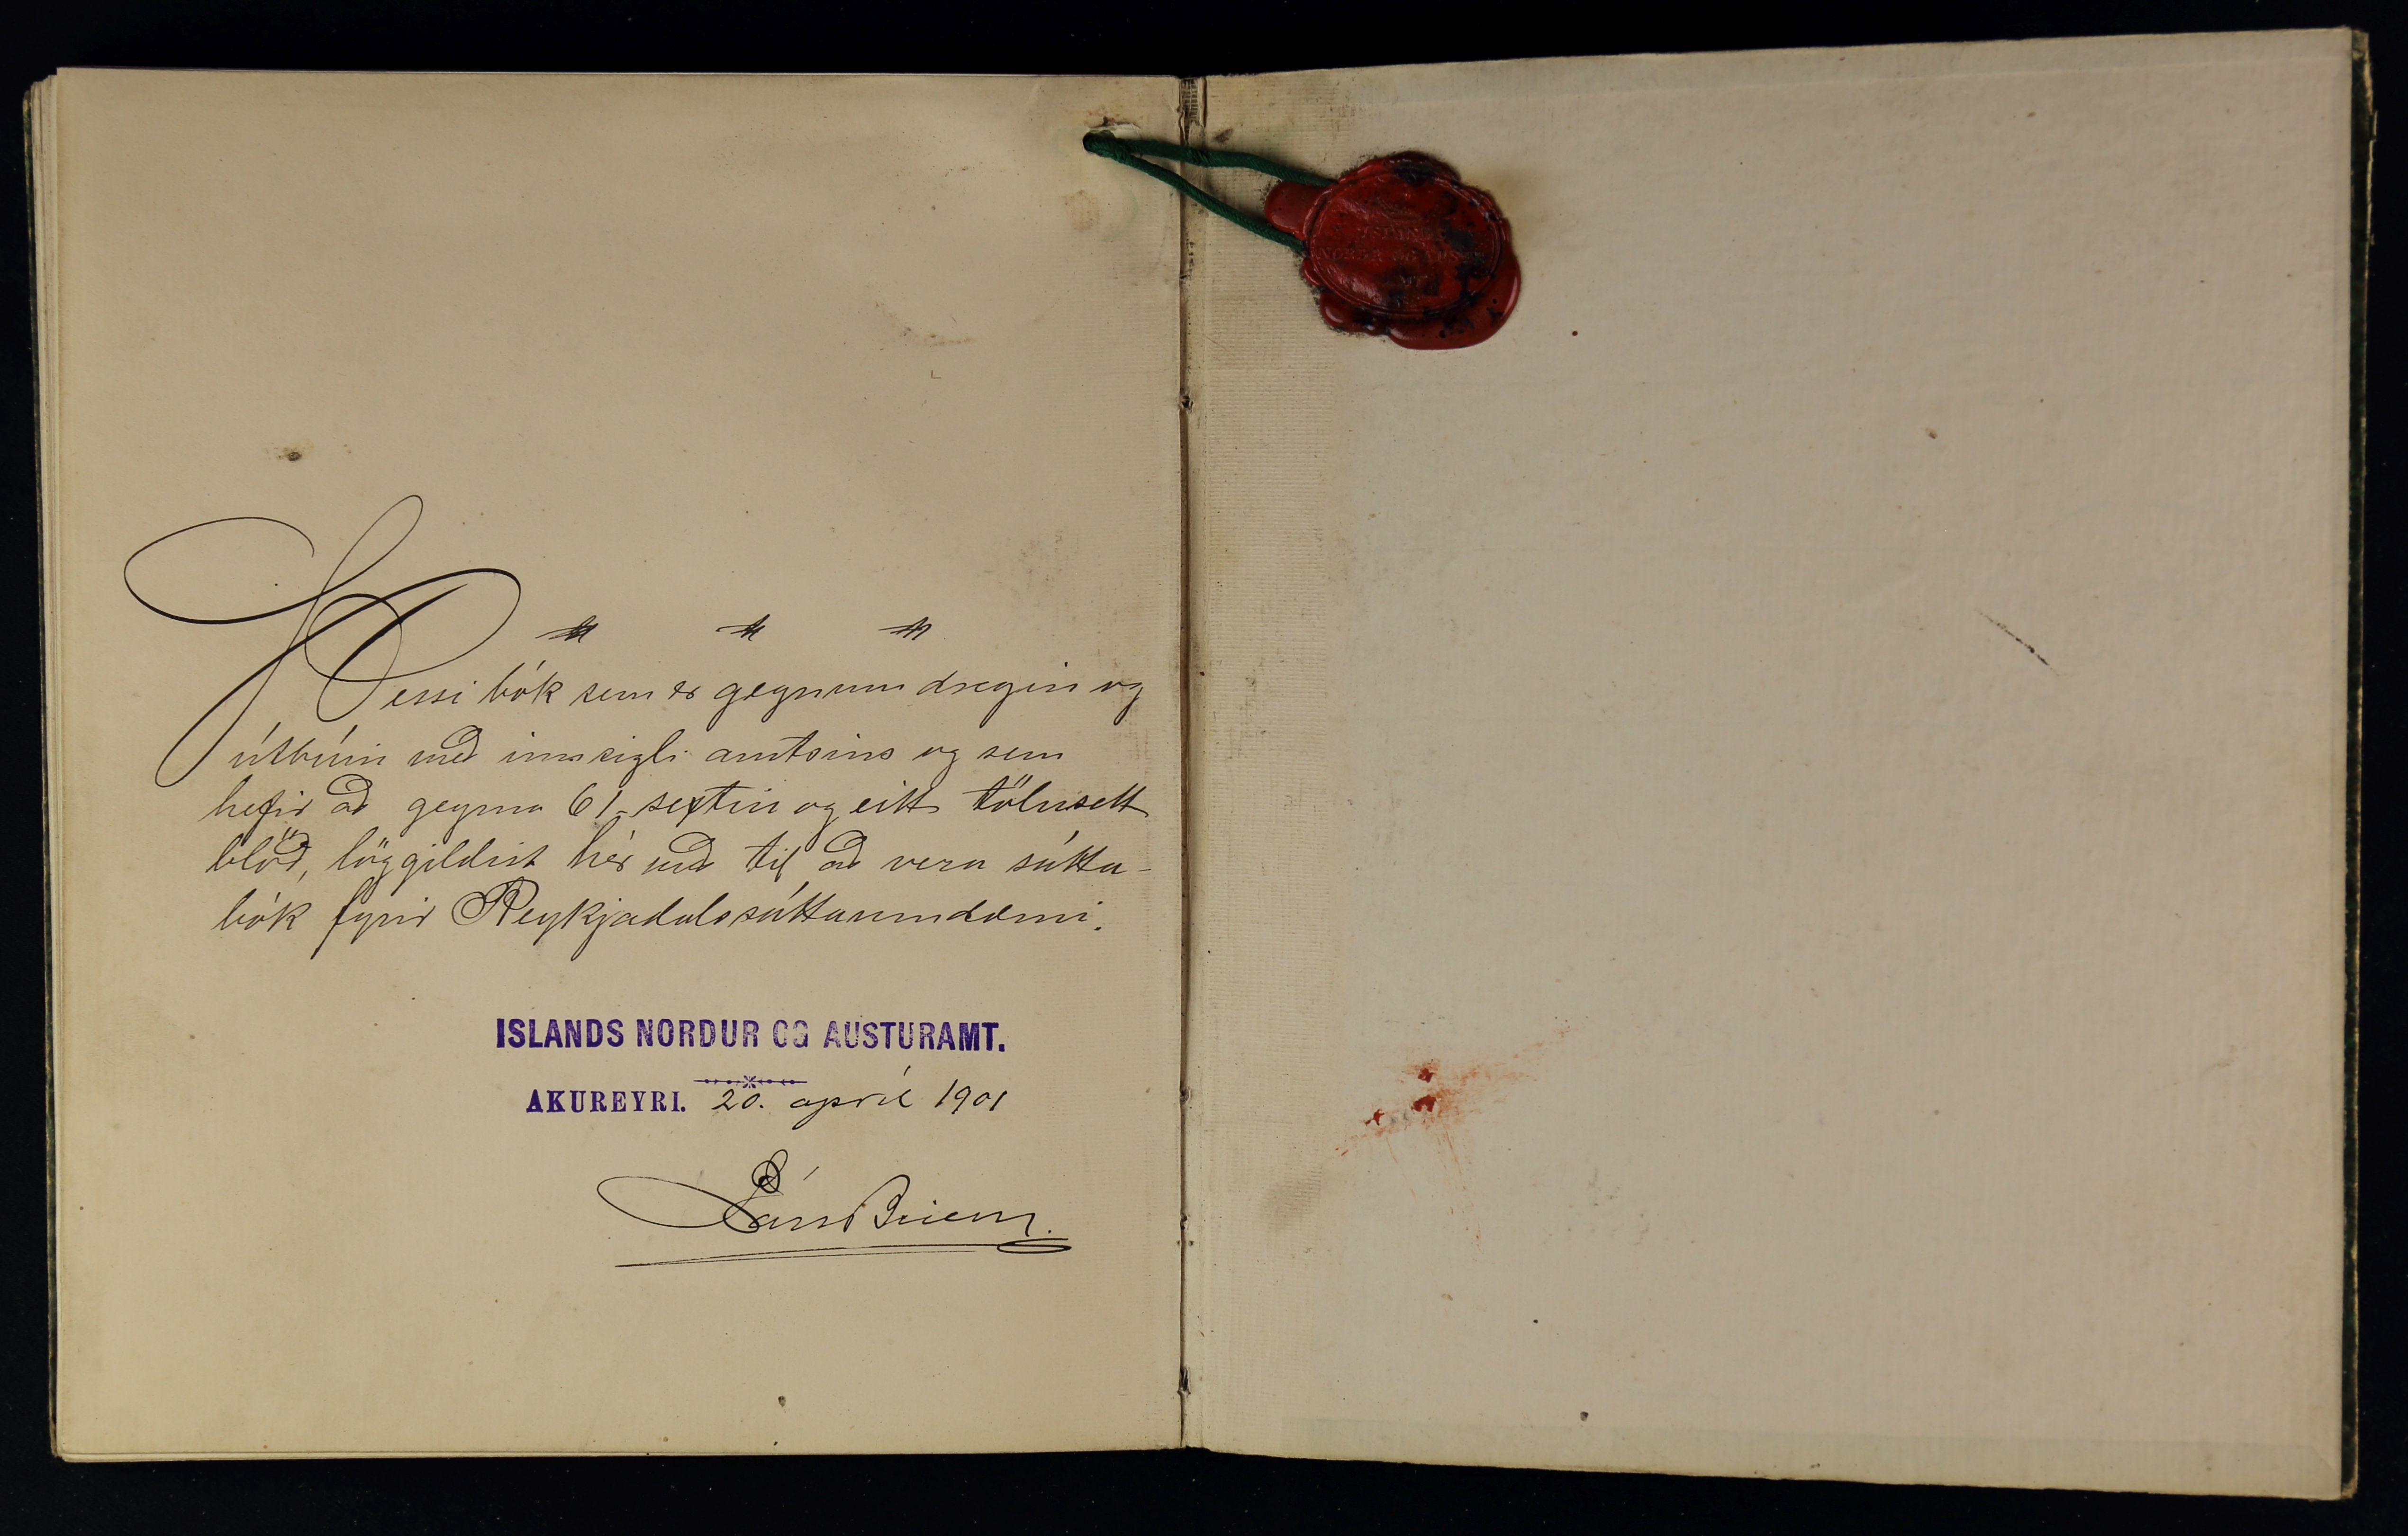 Þessi bók sem er gegnum dregin og
útbúin með innsigli amtsins og sem
hefir að geyma 61 - sextiu og eitt tölusett
blöð, löggildist hér með til að vera sátta-
bók fyrir Reykjadalssáttaumdæmi.
ISLANDS NORDUR OG AUSTURAMT.
AKUREYRI. 20. apríl 1901
Páll Briem.
NORDR OG